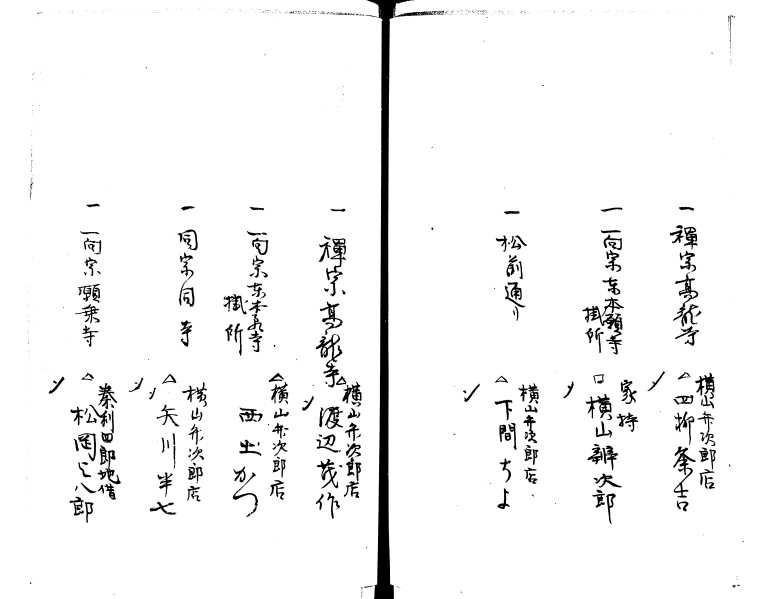 一 禅宗高龍寺
横山弁次郎店
△四柳粂吉
一 一向宗東本願寺
掛所
家持
□横山辨次郎
一 松前通り
横山弁次郎店
△下間ちよ
一 禅宗高龍寺
横山弁次郎店
△渡辺茂作
一 一向宗東本願寺
掛所
横山弁次郎店
△西出かつ
一 同宗同寺
横山弁次郎店
△矢川半七
一 一向宗願乗寺
秦利四郎地借
△松岡
八郎